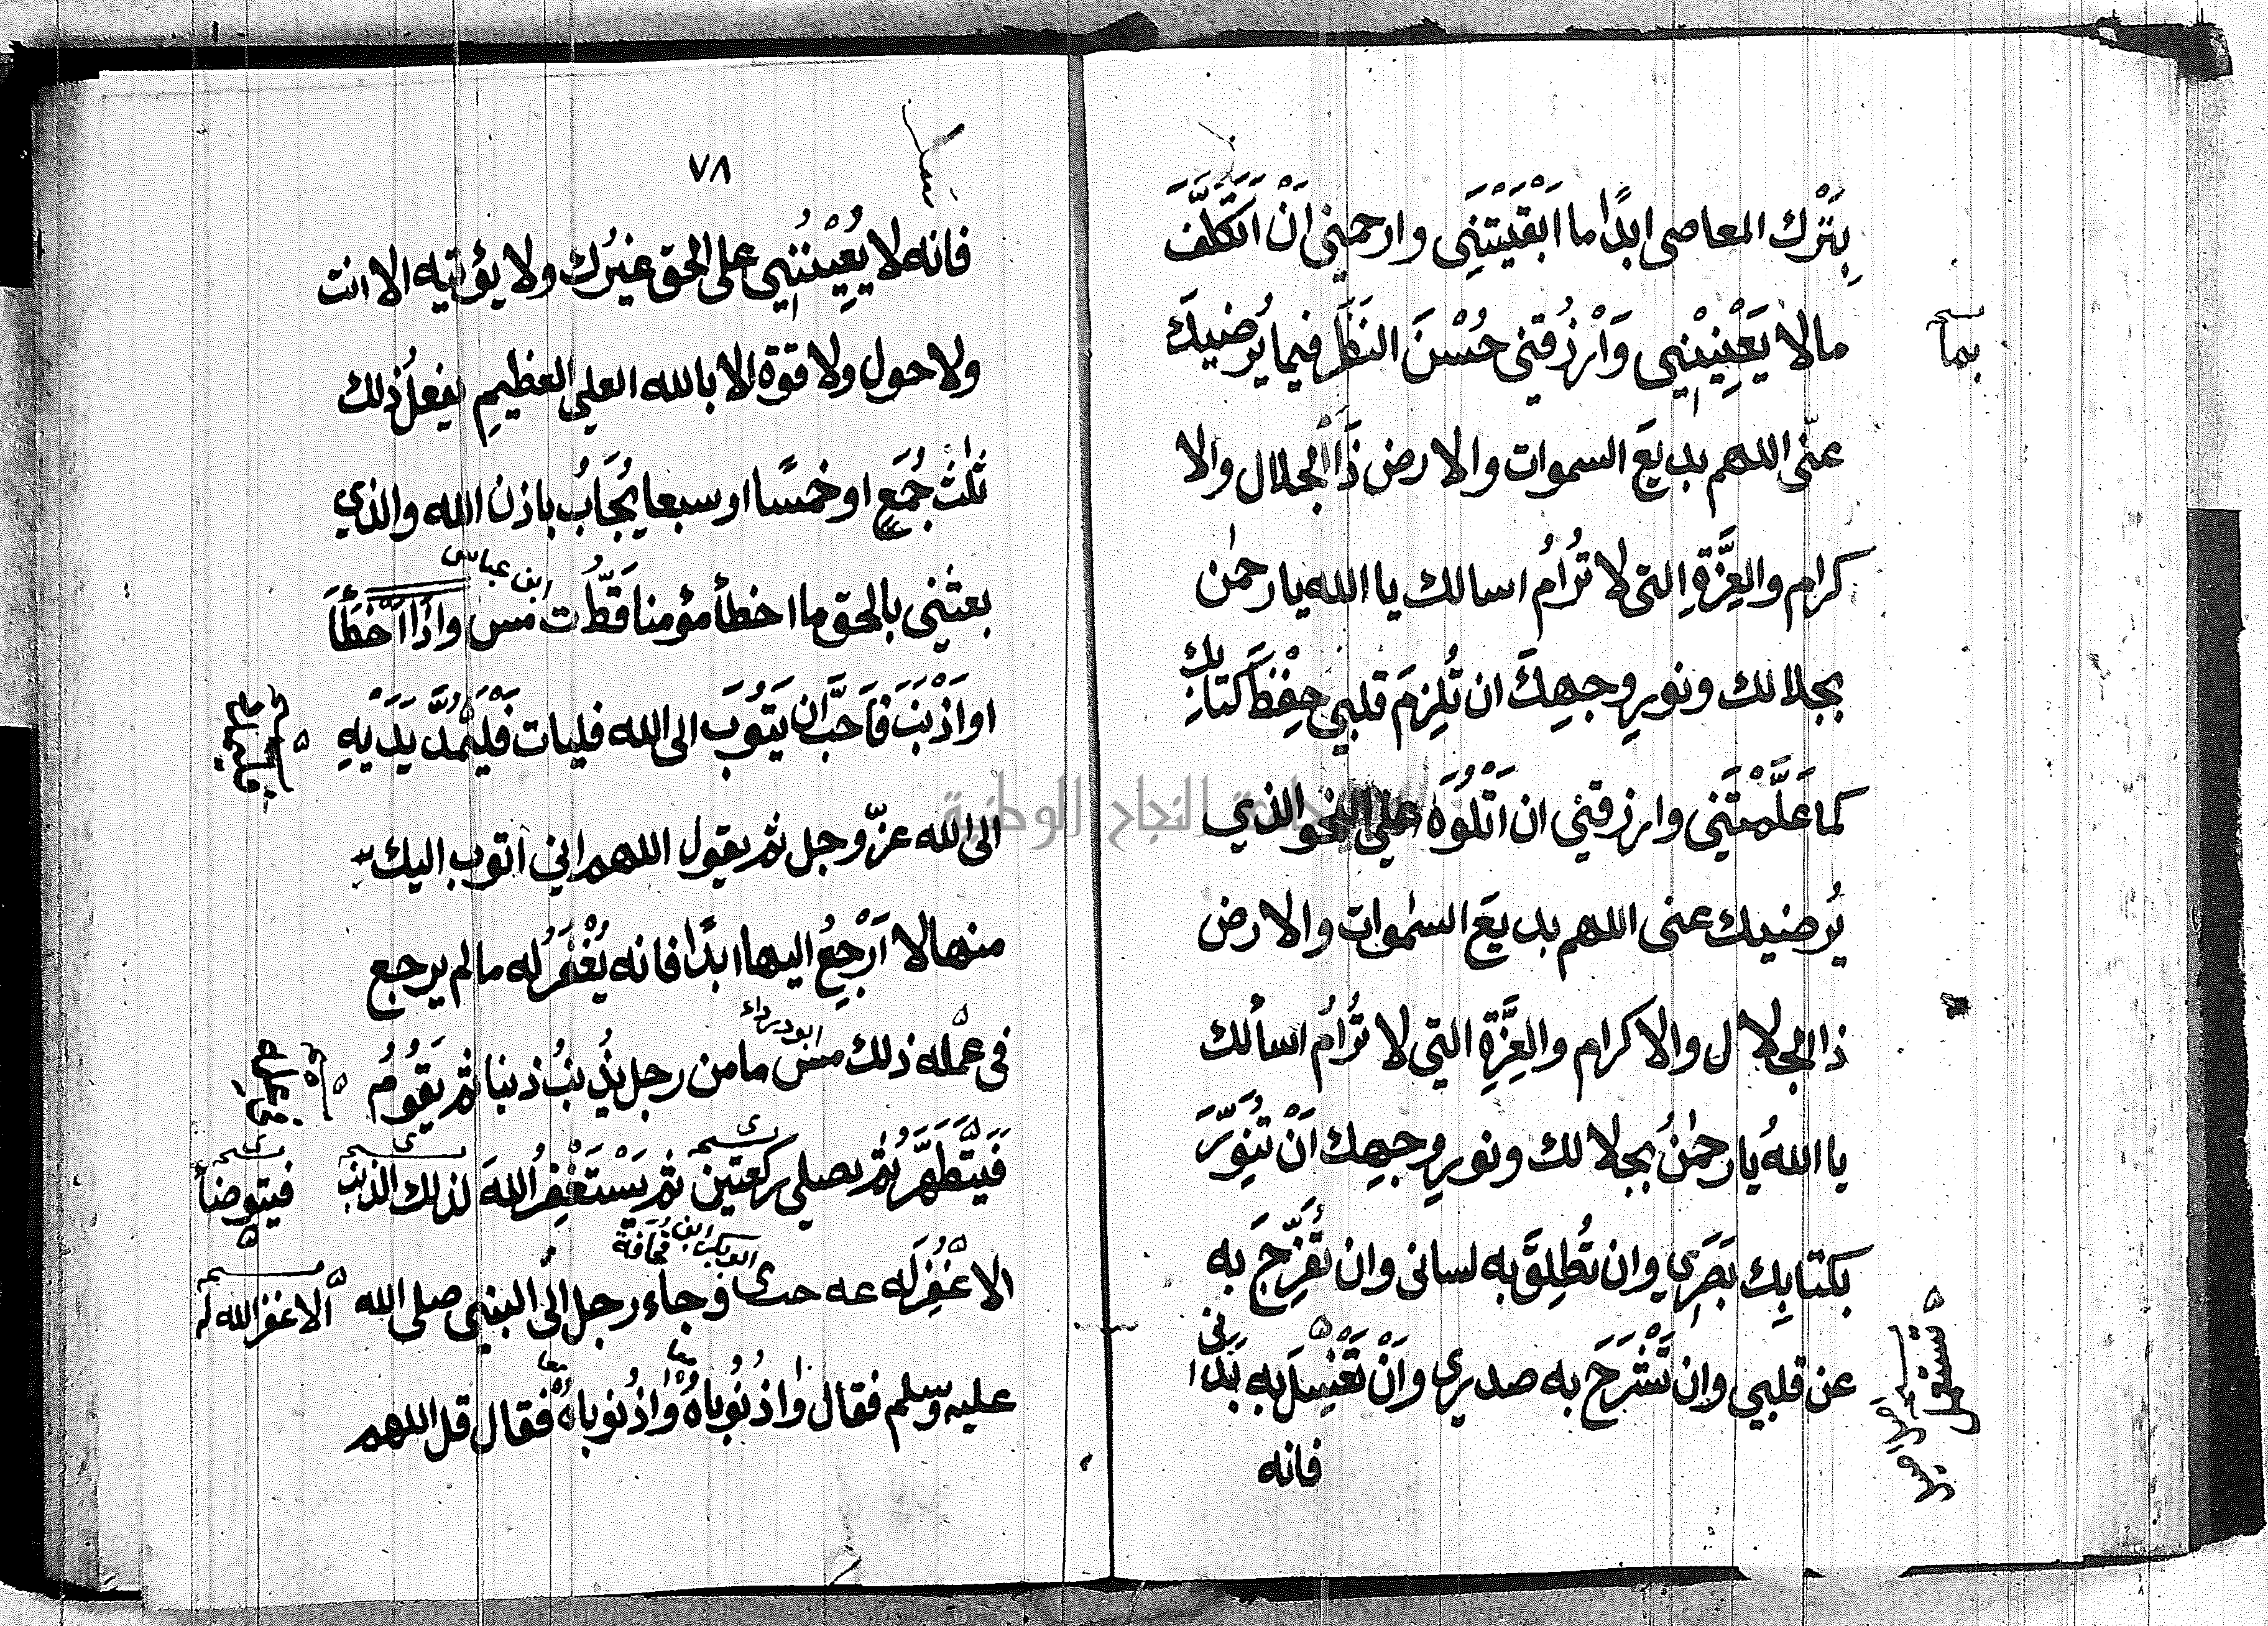 بِتَرْكِ المعاصى ابدًا ما اَبْقَيْتَنِى وارحمنى اَنْ اَتَكَلَّفَ
مالا يَعْنِيْنِيى وَاْرْزُقنى حُسْنَ النَظَرِ فيما يُرضيكَ
بما
عنّى اللهم بديعَ السموات والارض ذَا الجلال والا
كرام والعِزَّةِ التى لا تُرَامُ اسالك يا الله يا رحمٰن
بجلالك ونورِ وجهِكَ ان تُلْزِمَ قلبى حِفْظَ كتابِك
كما عَلَّمْتَنى وارزقنى ان اَتْلُوَهُ على النحو الذي
يُرضيك عنى اللهم بديعَ السمٰوات والارض
ذا الجلال والاكرام والعِزَّةِ التي لا تُرَامُ اسألك
يا اللهُ يا رحمٰنُ بجلالك ونورِ وجهِك اَنْ تُنَوِّرَ
بكتابِك بَصَرِي وان تُطْلِقَ به لسانى وان تُفَرِّجَ به
عن قلبي وان تَشْرَحَ به صدري واَنْ تَغْسِلَ به بَدَنى
تستعمل
فانه
٧٨
فانه لا يُعِيْنُنِيى على الحق غيرُك ولا يؤتيه الا انت
ولا حول ولا قوة الا بالله العلي العظيمِ يفعلُ ذلك
ثلٰثَ جُمَعٍ او خمسًا او سبعا يُجَابُ باذن الله والذي
بعثنى بالحق ما اخطأ مؤمنا قَطُّ ت مس واذَا اَخْطَأَ
ابن عباس
او اَذْنَبَ فَاَحَبَّ ان يَتُوبَ الى الله فليات فَلْيَمُدَّ يَدَيْهِ
الى الله عزّ وجل ثم يقول اللهم انى اتوب اليك
منها لا اَرْجِعُ اليها ابدًا فانه يُغْفَرُ له ما لم يرجع
فى عمله ذلك مس ما من رجل يُذْنِبُ ذنبا ثم يَقُومُ
ابو درداء
فَيَتَطَهَّرُ ثم يصلي ركعتين ثم يَسْتَغْفِرُ اللهَ لذلك الذنب
فيتوضأ
الا غُفِرَ له عه حب ى وجاء رجل الى النبى صلى الله
ابو بكر ابن قحافة
الا غفر الله له
عليه وسلم فقال واذنُوبَاهُ واذُنوباهُ فقال قل اللهم